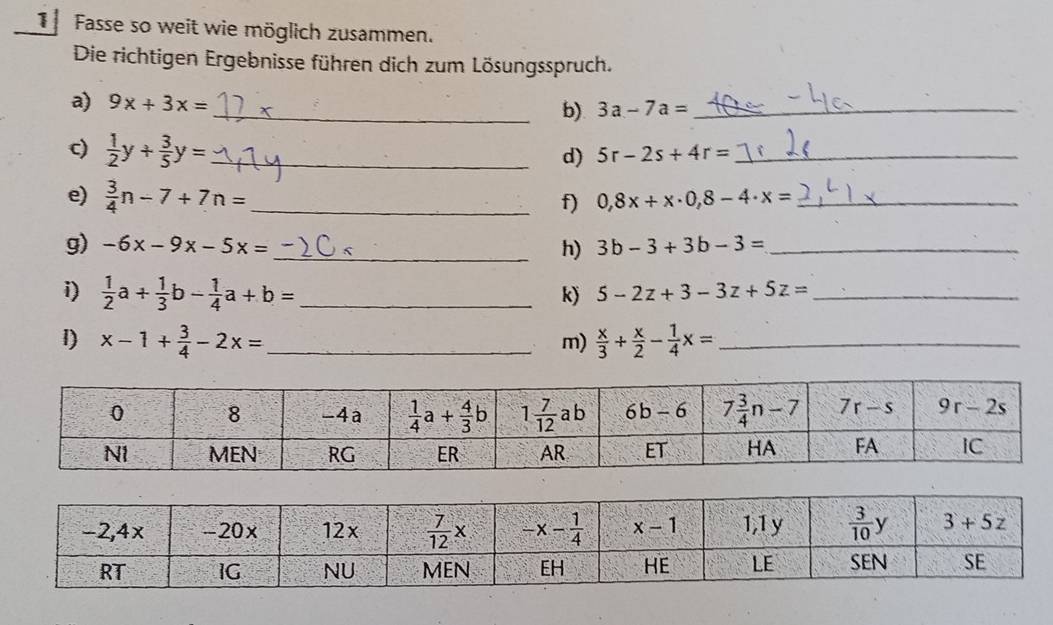 1 Fasse so weit wie möglich zusammen.
Die richtigen Ergebnisse führen dich zum Lösungsspruch.
a) 9x + 3x = 12 x
b) 3a - 7a = -4a
c) 1/2 y + 3/5 y = 1,1y
d) 5r - 2s + 4r =
e) 3/4 n - 7 + 7n =
f) 0,8x + x · 0,8 - 4 · x = 2,41x
g) -6x - 9x - 5x = -20x
h) 3b - 3 + 3b - 3 =
i) 1/2 a + 1/3 b - 1/4 a + b =
k) 5 - 2z + 3 - 3z + 5z =
l) x - 1 + 3/4 - 2x =
m) x/3 + x/2 - 1/4 x =
0 8 -4a 1/4 a + 4/3 b 1 7/12 ab 6b - 6 7 3/4 n - 7 7r - s 9r - 2s
NI MEN RG ER AR ET HA FA IC
-2,4x -20x 12x 7/12 x -x - 1/4 x - 1 1,1y 3/10 y 3 + 5z
RT IG NU MEN EH HE LE SEN SE